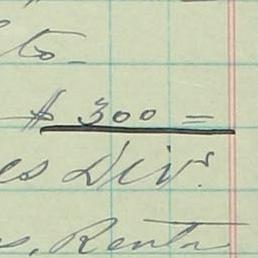 to-
$ 300 =
es Div.
s, Rents